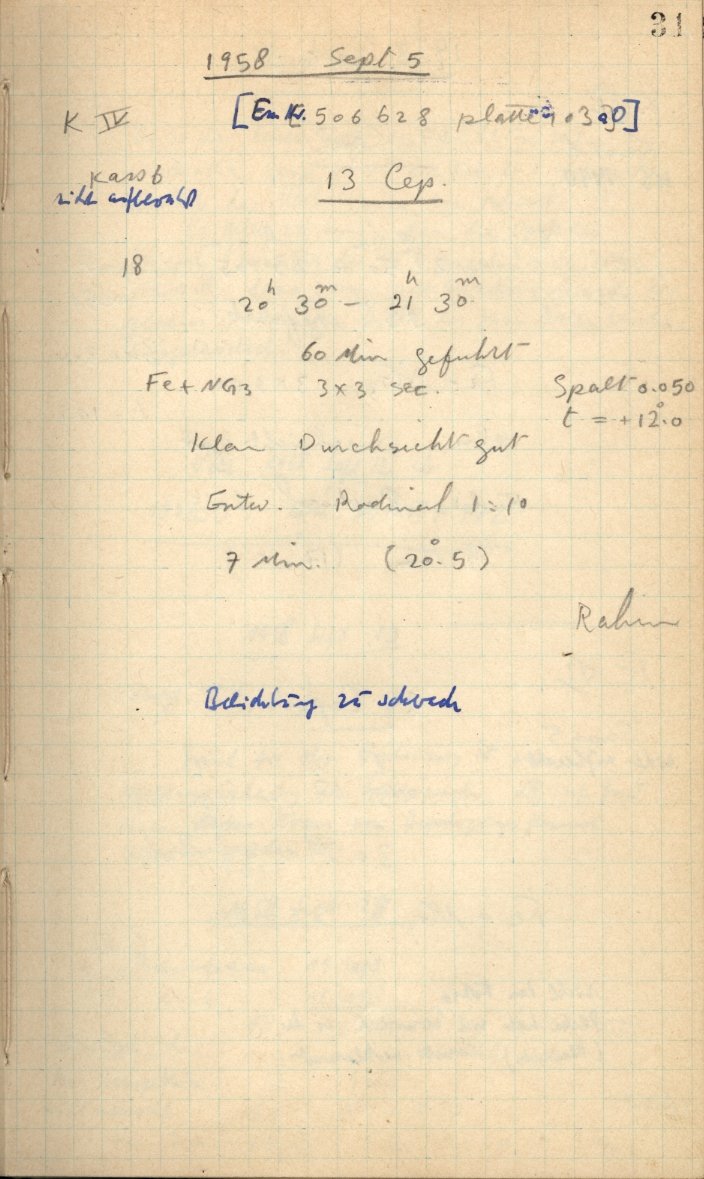 31
1958 Sept 5
K IV [Em Nr. 506628 platte 103aO]
13 Cep.
nicht aufbewahrt
18
20h 30m – 21h 30m
60 Min gefuhrt
Fe + NG3 3 x 3 sec. Spalt 0.050
t = +12°.0
Klar Durchsicht gut
Entw. Rodinal 1:10
7 Min. (20°.5)
Belichtung zu schwach